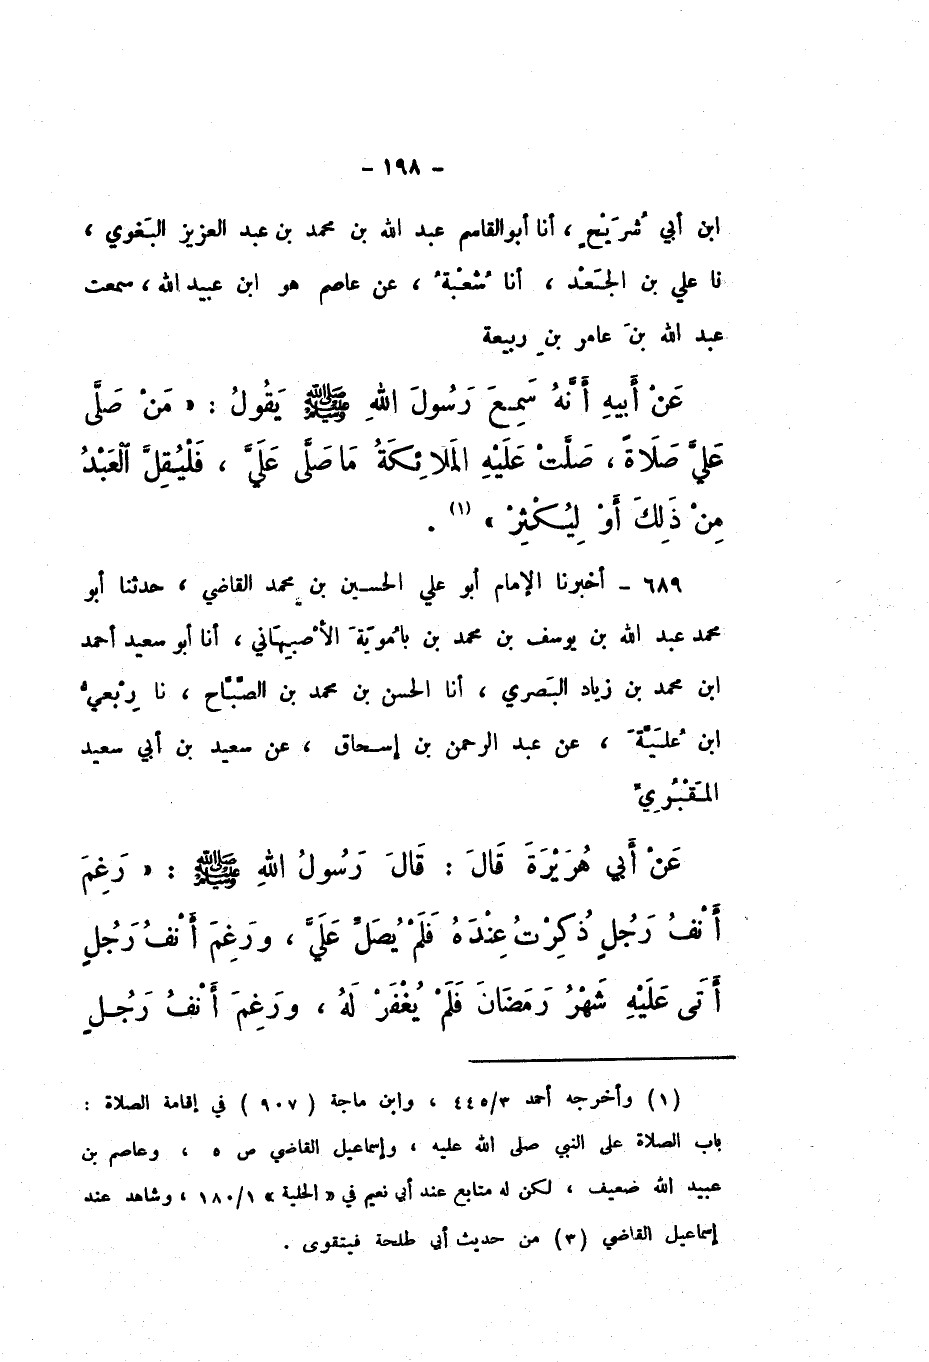 - ١٩٨ -
ابن أبي شُرَيْحٍ ، أنا أبوالقاسم عبد الله بن محمد بن عبد العزيز البَغوي ،
نا علي بن الجَعْد ، أنا شُعْبةُ ، عن عاصم هو ابن عبيد الله ، سمعت
عبد الله بنَ عامر بنِ ربيعة
عَنْ أَبيهِ أَنَّهُ سَمِعَ رَسُولَ اللهِ ﷺ يَقُولُ : « مَنْ صَلَّى
عَليَّ صَلَاةً ، صَلَّتْ عَلَيْهِ المَلائِكَةُ مَا صَلَّى عَلَيَّ ، فَلْيُقِلَّ ٱلعَبْدُ
مِنْ ذَلِكَ أَوْ لِيُكْثِرْ » (١) .
٦٨٩ - أخبرنا الإمام أبو علي الحسين بن محمد القاضي ، حدثنا أبو
محمد عبد الله بن يوسف بن محمد بن بامُويَةَ الأصْبِهَاني ، أنا أبو سعيد أحمد
ابن محمد بن زياد البَصري ، أنا الحسن بن محمد بن الصَّبَّاح ، نا رِبْعيُّ
ابن عُلَيَّةَ ، عن عبد الرحمن بن إسحاق ، عن سعيد بن أبي سعيد
المَقْبُرِيِّ
عَنْ أَبي هُرَيْرَةَ قَالَ : قَالَ رَسُولُ اللهِ ﷺ : « رَغِمَ
أَنْفُ رَجُلٍ ذُكِرْتُ عِنْدَهُ فَلَمْ يُصَلِّ عَلَيَّ ، ورَغِمَ أَنْفُ رَجُلٍ
أَتَى عَلَيْهِ شَهْرُ رَمَضَانَ فَلَمْ يُغْفَرْ لَهُ ، ورَغِمَ أَنْفُ رَجُلٍ
(١) وأخرجه أحمد ٤٤٥/٣ ، وابن ماجة ( ٩٠٧ ) في إقامة الصلاة :
باب الصلاة على النبي صلى الله عليه ، وإسماعيل القاضي ص ٥ ، وعاصم بن
عبيد الله ضعيف ، لكن له متابع عند أبي نعيم في « الحلية » ١٨٠/١ ، وشاهد عند
إسماعيل القاضي (٣) من حديث أبي طلحة فيتقوى .